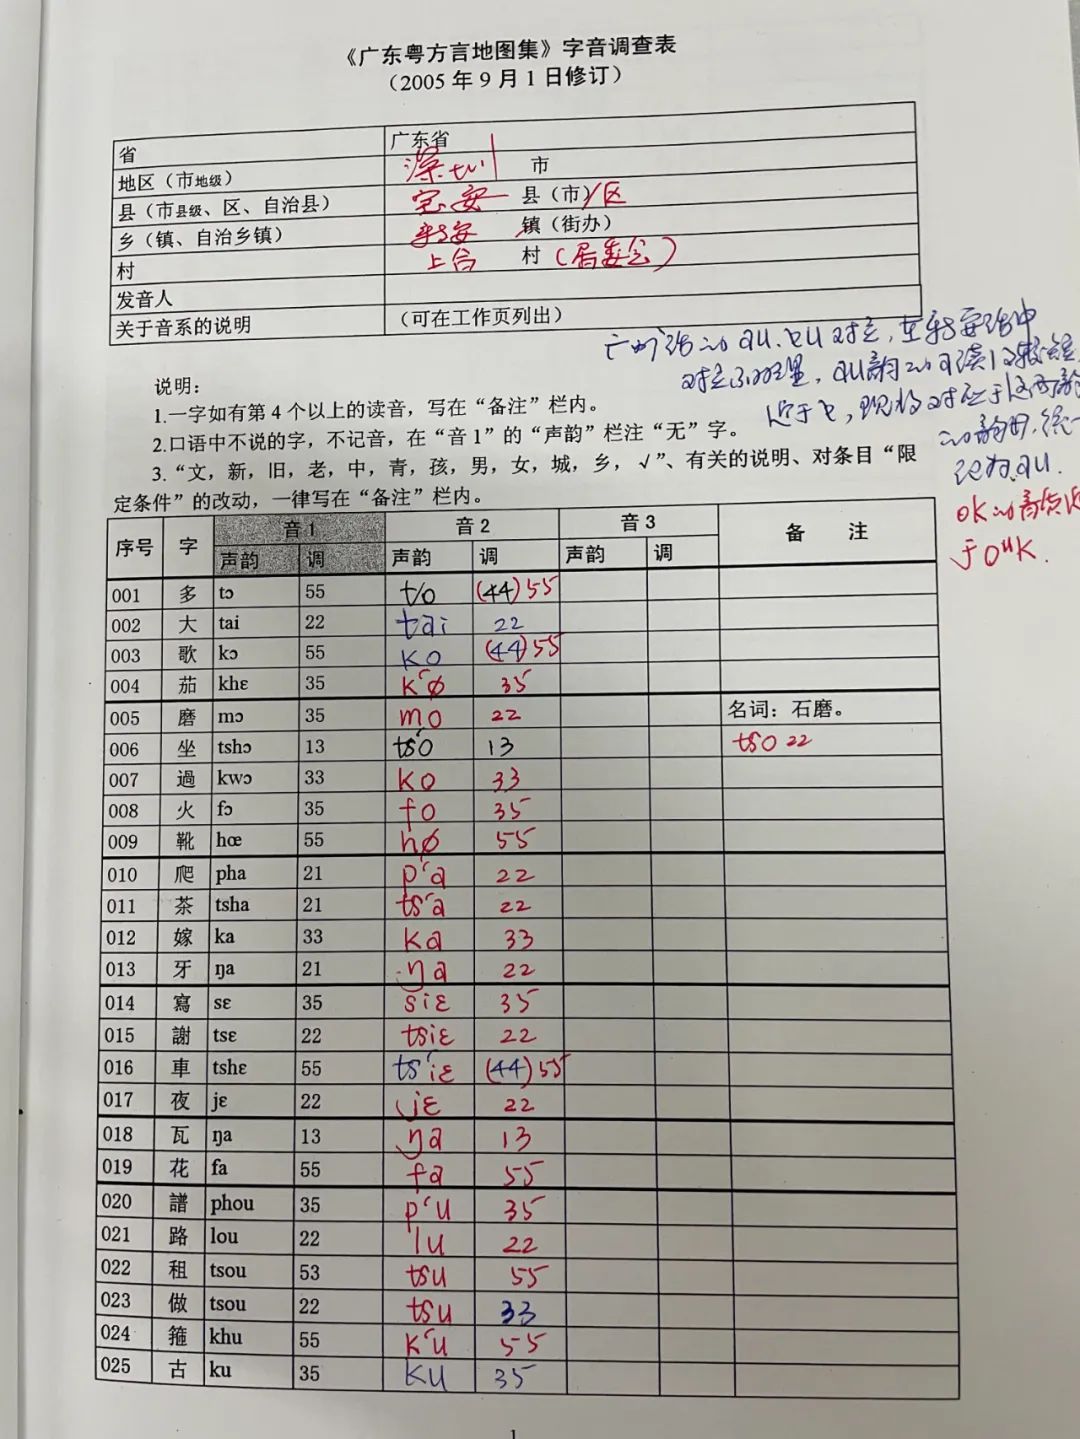 《广东粤方言地图集》字音调查表
（2005年9月1日修订）
省 广东省
地区（市地级） 深圳 市
县（市县级、区、自治县） 宝安 县（市）/区
乡（镇、自治乡镇） 新安 镇（街办）
村 上合 村（居委会）
发音人
关于音系的说明 （可在工作页列出）
广州话的au、ɐu对立，在新安话中
对立不明显，au韵的a可读
近于ɐ，现将对应于这两韵
的韵母，统一
记为au.
ok的音值近
于oᵘk.
说明：
1.一字如有第4个以上的读音，写在“备注”栏内。
2.口语中不说的字，不记音，在“音1”的“声韵”栏注“无”字。
3.“文，新，旧，老，中，青，孩，男，女，城，乡，√”、有关的说明、对条目“限
定条件”的改动，一律写在“备注”栏内。
序号 字 音1 音2 音3 备 注
声韵 调 声韵 调 声韵 调
001 多 tɔ 55 to (44)55
002 大 tai 22 tai 22
003 歌 kɔ 55 ko (44)55
004 茄 khɛ 35 k‘ø 35
005 磨 mɔ 35 mo 22 名词：石磨。
006 坐 tshɔ 13 ts‘o 13 tso 22
007 過 kwɔ 33 ko 33
008 火 fɔ 35 fo 35
009 靴 hœ 55 hø 55
010 爬 pha 21 p‘a 22
011 茶 tsha 21 ts‘a 22
012 嫁 ka 33 ka 33
013 牙 ŋa 21 ŋa 22
014 寫 sɛ 35 siɛ 35
015 謝 tsɛ 22 tsiɛ 22
016 車 tshɛ 55 ts‘iɛ (44)55
017 夜 jɛ 22 jɛ 22
018 瓦 ŋa 13 ŋa 13
019 花 fa 55 fa 55
020 譜 phou 35 p‘u 35
021 路 lou 22 lu 22
022 租 tsou 53 tsu 55
023 做 tsou 22 tsu 33
024 箍 khu 55 k‘u 55
025 古 ku 35 ku 35
1